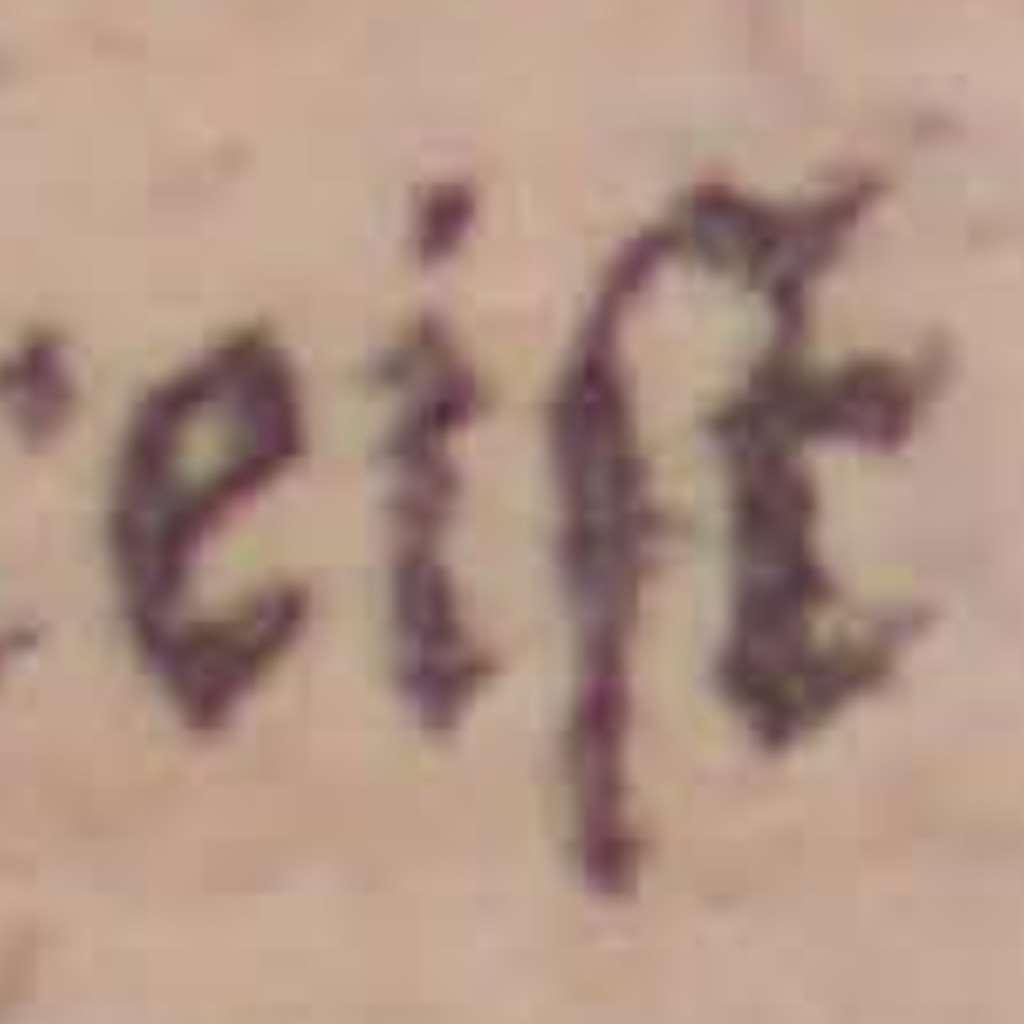 eiſt